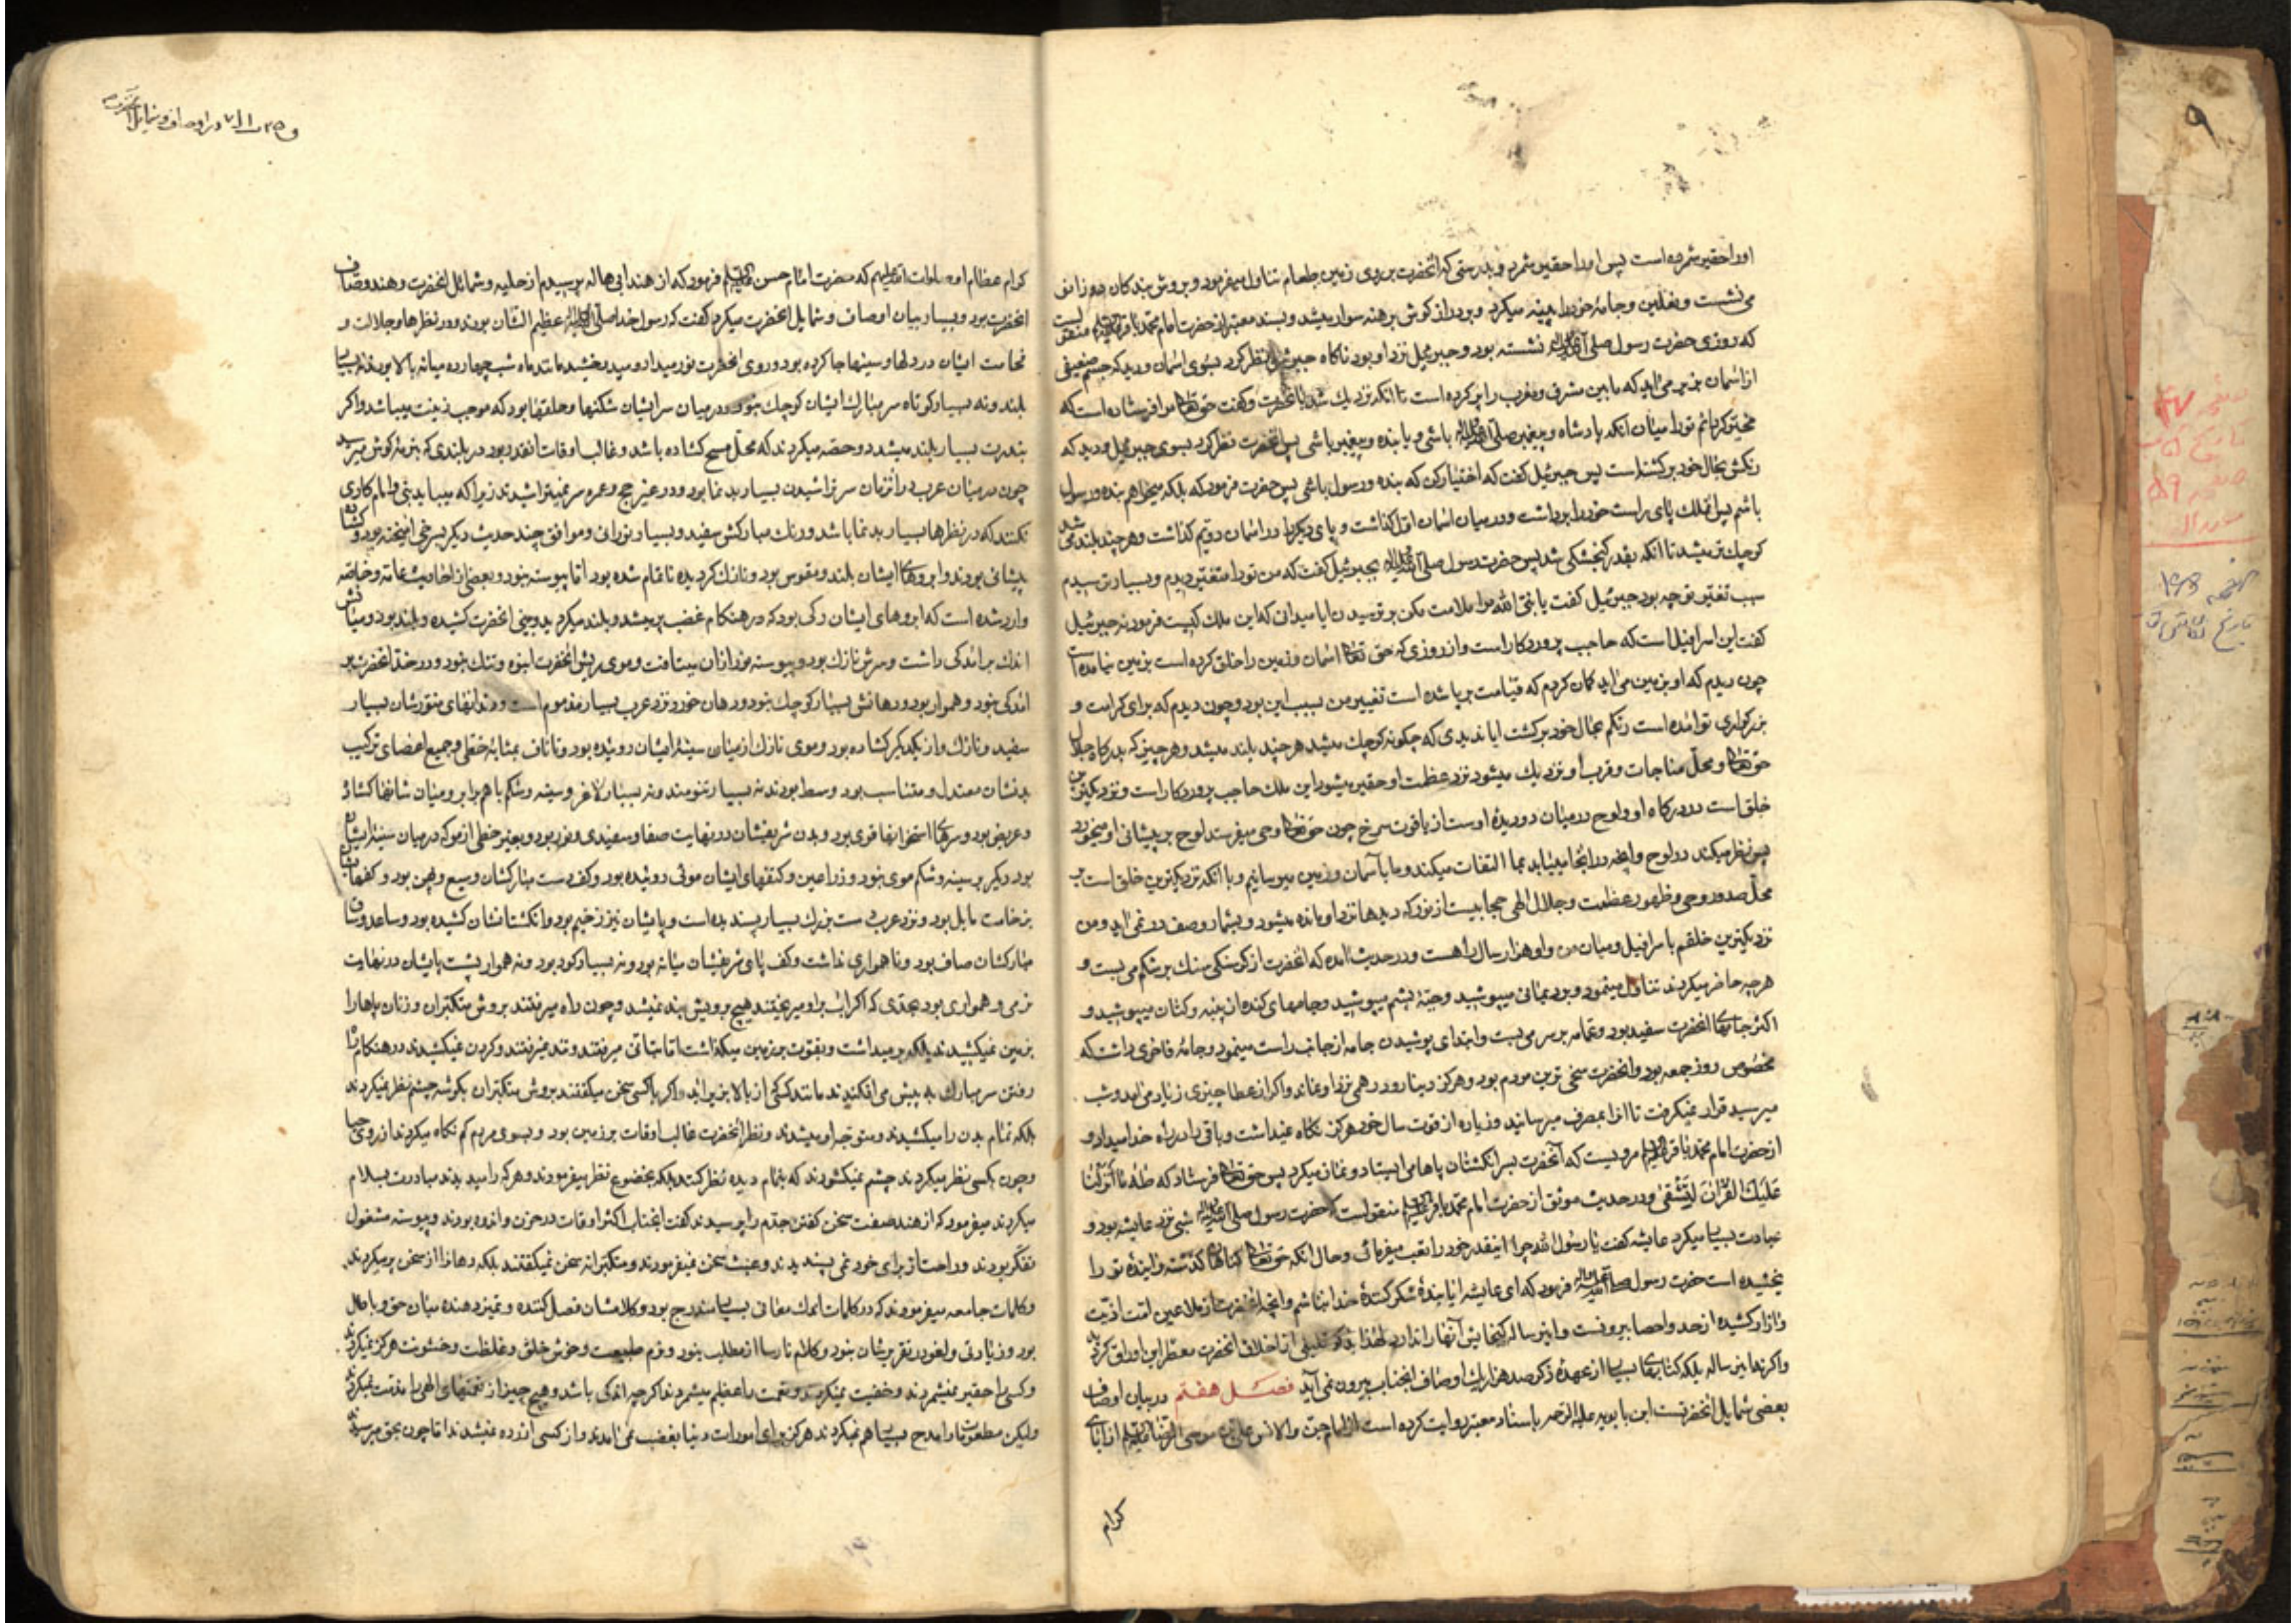 او را حقیر شمرده است پس او را حقیر شمرد و بدرستی که انحضرت بر روی زمین طعام تناول میفرمود و بروش بندکان دو زانو
می نشست و نعلین و جامهٔ خود را پینه میکرد و بر درازکوش برهنه سوار میشد و بسند معتبر از حضرت امام محمد باقر منقولست
که روزی حضرت رسول صلی الله علیه و اله نشسته بود و جبرئیل نزد او بود ناکاه جبرئیل نظر کرد بسوی اسمان و دید که جسم
از اسمان بزیر می اید که مابین مشرق و مغرب را پر کرده است تا انکه نزدیک شد بانحضرت و کفت حق تعالی مرا فرستاده است که
مخیر کردانم تو را میان انکه پادشاه و پیغمبر باشی و یا بنده و پیغمبر باشی پس انحضرت نظر کرد بسوی جبرئیل و دید که
رنکش بحال خود برکشته است پس جبرئیل کفت که اختیار کن که بنده و رسول باشی پس حضرت فرمود که بلکه میخواهم بنده و رسول
باشم پس ان ملک پای راست خود را برداشت و در میان اسمان اول کذاشت و پای دیکر را در اسمان دویم کذاشت و هر چند بلند می شد
کوچک تر میشد تا انکه بقدر کنجشکی شد پس حضرت رسول صلی الله علیه و اله بجبرئیل کفت که من تو را متغیر دیدم و بسیار ترسیدم
سبب تغییر تو چه بود جبرئیل کفت یا نبی الله مرا ملامت مکن بر ترسیدن ایا میدانی که این ملک کیست فرمود نه جبرئیل
کفت این اسرافیل است که حاجب پروردکار است و از روزی که حق تعالی اسمان و زمین را خلق کرده است بزمین نیامده است
چون دیدم که او بزمین می اید کمان کردم که قیامت برپا شده است تغییر من بسبب این بود و چون دیدم که برای کرامت و
بزرکواری تو امده است رنکم بحال خود برکشت ایا ندیدی که چکونه کوچک میشد هر چند بلند میشد و هر چیز که بدرکاه جلال
حق تعالی و محل مناجات و قرب او نزدیک میشود نزد عظمت او حقیر میشود این ملک حاجب پروردکار است و نزدیکترین
خلق است در درکاه او و لوح در میان دو دیدهٔ اوست از یاقوت سرخ چون حق تعالی وحی میفرستد لوح بر پیشانی او میخورد
پس نظر میکند در لوح و انچه در انجا مییابد بما التفات میکند و ما باسمان و زمین میرسانیم و با انکه نزدیکترین خلق است بر
محل صدور وحی و ظهور عظمت و جلال الهی حجابیست از نور که دیدها نزد او مانده میشود و بشمار و وصف در نمی اید و من
نزدیکترین خلقم با سرافیل و میان من و او هزار سال راهست و در حدیث امده که انحضرت از کرسنکی سنک بر شکم می بست و
هر چه حاضر میکردند تناول مینمود و برد یمانی میپوشید و جبهٔ پشم میپوشید و جامهای کنده از پنبه و کتان میپوشید و
اکثر جامهای انحضرت سفید بود و عمامه بر سر می بست و ابتدای پوشیدن جامه از جانب راست مینمود و جامهٔ فاخری داشت که
مخصوص روز جمعه بود و انحضرت سخی ترین مردم بود و هرکز دینار و درهمی نزد او نماند و اکر از عطا چیزی زیاد می امد و شب
میرسید قرار نمیکرفت تا انرا بمصرف میرسانید و زیاده از قوت سال خود هرکز نکاه نمیداشت و باقی را در راه خدا میداد و
از حضرت امام محمد باقر علیه السلام مرویست که آنحضرت بسر انکشتان پاها می ایستاد و نماز میکرد پس حق تعالی فرستاد که طه ما انزلنا
علیك القرآن لتشقی و در حدیث موثق از حضرت امام محمد باقر منقولست که حضرت رسول صلی الله علیه و اله شبی نزد عایشه بود و
عبادت بسیار میکرد عایشه کفت یا رسول الله چرا اینقدر خود را تعب میفرمائی و حال انکه حق تعالی کناهان کذشته و ایندهٔ تو را
بخشیده است حضرت رسول فرمود که ای عایشه ایا بندهٔ شکر کنندهٔ خدا نباشم و انچه انحضرت از ملاعین امت اذیت
و ازار کشیده از حد و احصا بیرونست و این رساله کنجایش آنها را ندارد لهذا بذکر قلیلی از اخلاق انحضرت معطر این اوراق کردید
و اکر نه این رساله بلکه کتابهای بسیار از عهدهٔ ذکر صد هزار یک اوصاف انجناب بیرون نمی آید فصل هفتم در بیان اوصاف
بعضی شمایل انحضرتست ابن بابویه علیه الرحمه باسناد معتبر روایت کرده است از امام جن و الانس علی بن موسی الرضا از ابای
کرام
کرام عظام او صلوات الله علیهم که حضرت امام حسن علیه السلام فرمود که از هند ابی هاله پرسیدم از حلیه و شمائل انحضرت و هند وصاف
انحضرت بود و بسیار بیان اوصاف و شمایل انحضرت میکرد کفت که رسول خدا عظیم الشان بودند و در نظرها و جلالت و
در دلها و سینها جا کرده بود و روی انحضرت نور میداد و میدرخشید مانند ماه شب چهارده میانه بالا بود نه بسیار
بلند و نه بسیار کوتاه سر مبارک ایشان کوچک نبود و در میان سر ایشان شکنها و حلقها بود که موجب زینت میباشد و اکر
بندرت بسیار بلند میشد دو حصه میکردند که محل مسح کشاده باشد و غالب اوقات انقدر بود در بلندی که بنرمهٔ کوش میرسید
چون در میان عرب در انزمان سر تراشیدن بسیار بد نما بود و در غیر حج و عمره سر نمیتراشیدند زیرا که میباید نبی و امام کاری
نکنند که در نظرها بسیار بد نما باشد و رنک مبارکش سفید و بسیار نورانی و موافق چند حدیث دیکر بسرخی امیخته بود و کشاده
پیشانی بودند و ابروهای ایشان بلند و مقوس بود و نازک کردیده تا تمام شده بود اما پیوسته نبود و بعضی از احادیث عامه و خاصه
وارد شده است که ابروهای ایشان رکی بود که در هنکام غضب پر میشد و بلند میکردید و بینی انحضرت کشیده و بلند بود و میانش
اندک برامدکی داشت و سرش نازک بود و پیوسته نور از ان میتافت و موی ریش انحضرت انبوه و تنک نبود و در خد انحضرت بر
امدکی نبود و هموار بود و دهانش بسیار کوچک نبود و دهان خورد نزد عرب بسیار مذموم است و دندانهای منورشان بسیار
سفید و نازک و از یکدیکر کشاده بود و موی نازک از میان سینهٔ ایشان روئیده بود و تا ناف بمثابهٔ خطی و جمیع اعضای ترکیب
بدنشان معتدل و متناسب بود وسط بودند نه بسیار تنومند و نه بسیار لاغر و سینه و شکم باهم برابر و میان شانها کشاده
و عریض بود و سرهای استخوانها قوی بود و بدن شریفشان در نهایت صفا و سفیدی و نور بود و بغیر خطی از مو که در میان سینهٔ ایشان
بود دیکر بر سینه و شکم موی نبود و ذراعین و کتفهای ایشان موئی روئیده بود و کف دست مبارکشان وسیع و پهن بود و
بزخامت مایل بود و نزد عرب دست بزرک بسیار پسندیده است و پایشان نیز زخیم بود و انکشتانشان کشیده بود و ساعد و ساق
مبارکشان صاف بود و ناهمواری نداشت و کف پای شریفشان میانه بود و نه بسیار کود بود و نه هموار پشت پایشان در نهایت
نرمی و همواری بود بحدی که اکر اب براو میریختند هیچ برویش بند نمیشد و چون راه میرفتند بروش متکبران و زنان پاها را
بزمین نمیکشیدند بلکه بر میداشت و بقوت بر زمین میکذاشت اما بتانی میرفتند و تند نمیرفتند و کردن نمیکشیدند و در هنکام راه
رفتن سر مبارک به پیش می افکندند مانند کسی که از بالا بزیر اید و اکر با کسی سخن میکفتند بروش متکبران بکوشهٔ چشم نظر نمیکردند
بلکه تمام بدن را میکشیدند و متوجه او میشدند و نظر انحضرت غالب اوقات بر زمین بود و بسوی مردم کم نکاه میکردند از روی حیا
و چون بکسی نظر میکردند چشم نمیکشودند که بتمام دیده نظر کنند بلکه بخضوع نظر میفرمودند و هر که را میدیدند مبادرت بسلام
میکردند میفرمود که از هند صفت سخن کفتن جدم را پرسیدند کفت انجناب اکثر اوقات در حزن و اندوه بودند و پیوسته مشغول
تفکر بودند و راحت از برای خود نمی پسندیدند و عبث سخن نمیفرمودند و متکبرانه سخن نمیکفتند بلکه دهانرا از سخن پر میکردند
و کلمات جامعه میفرمودند که در کلمات اندک معانی بسیار مندرج بود و کلامشان فصل کننده و تمیز دهنده میان حق و باطل
بود و زیادتی و لغو در تقریرشان نبود و کلام نارسا از مطلب نبود و نرم طبیعت و خوش خلق و غلظت و خشونت هرکز نمیکردند
و کسی را حقیر نمیشمردند و خفیف نمیکردند و نعمت را عظیم میشمردند اکرچه اندکی باشد و هیچ چیز از نعمتهای الهی را مذمت نمیکردند
ولیکن مطعومات را مدح بسیار هم نمیکردند هرکز برای امورات دنیا بغضب نمی امدند و از کسی ازرده نمیشدند اما چون بحق میرسید